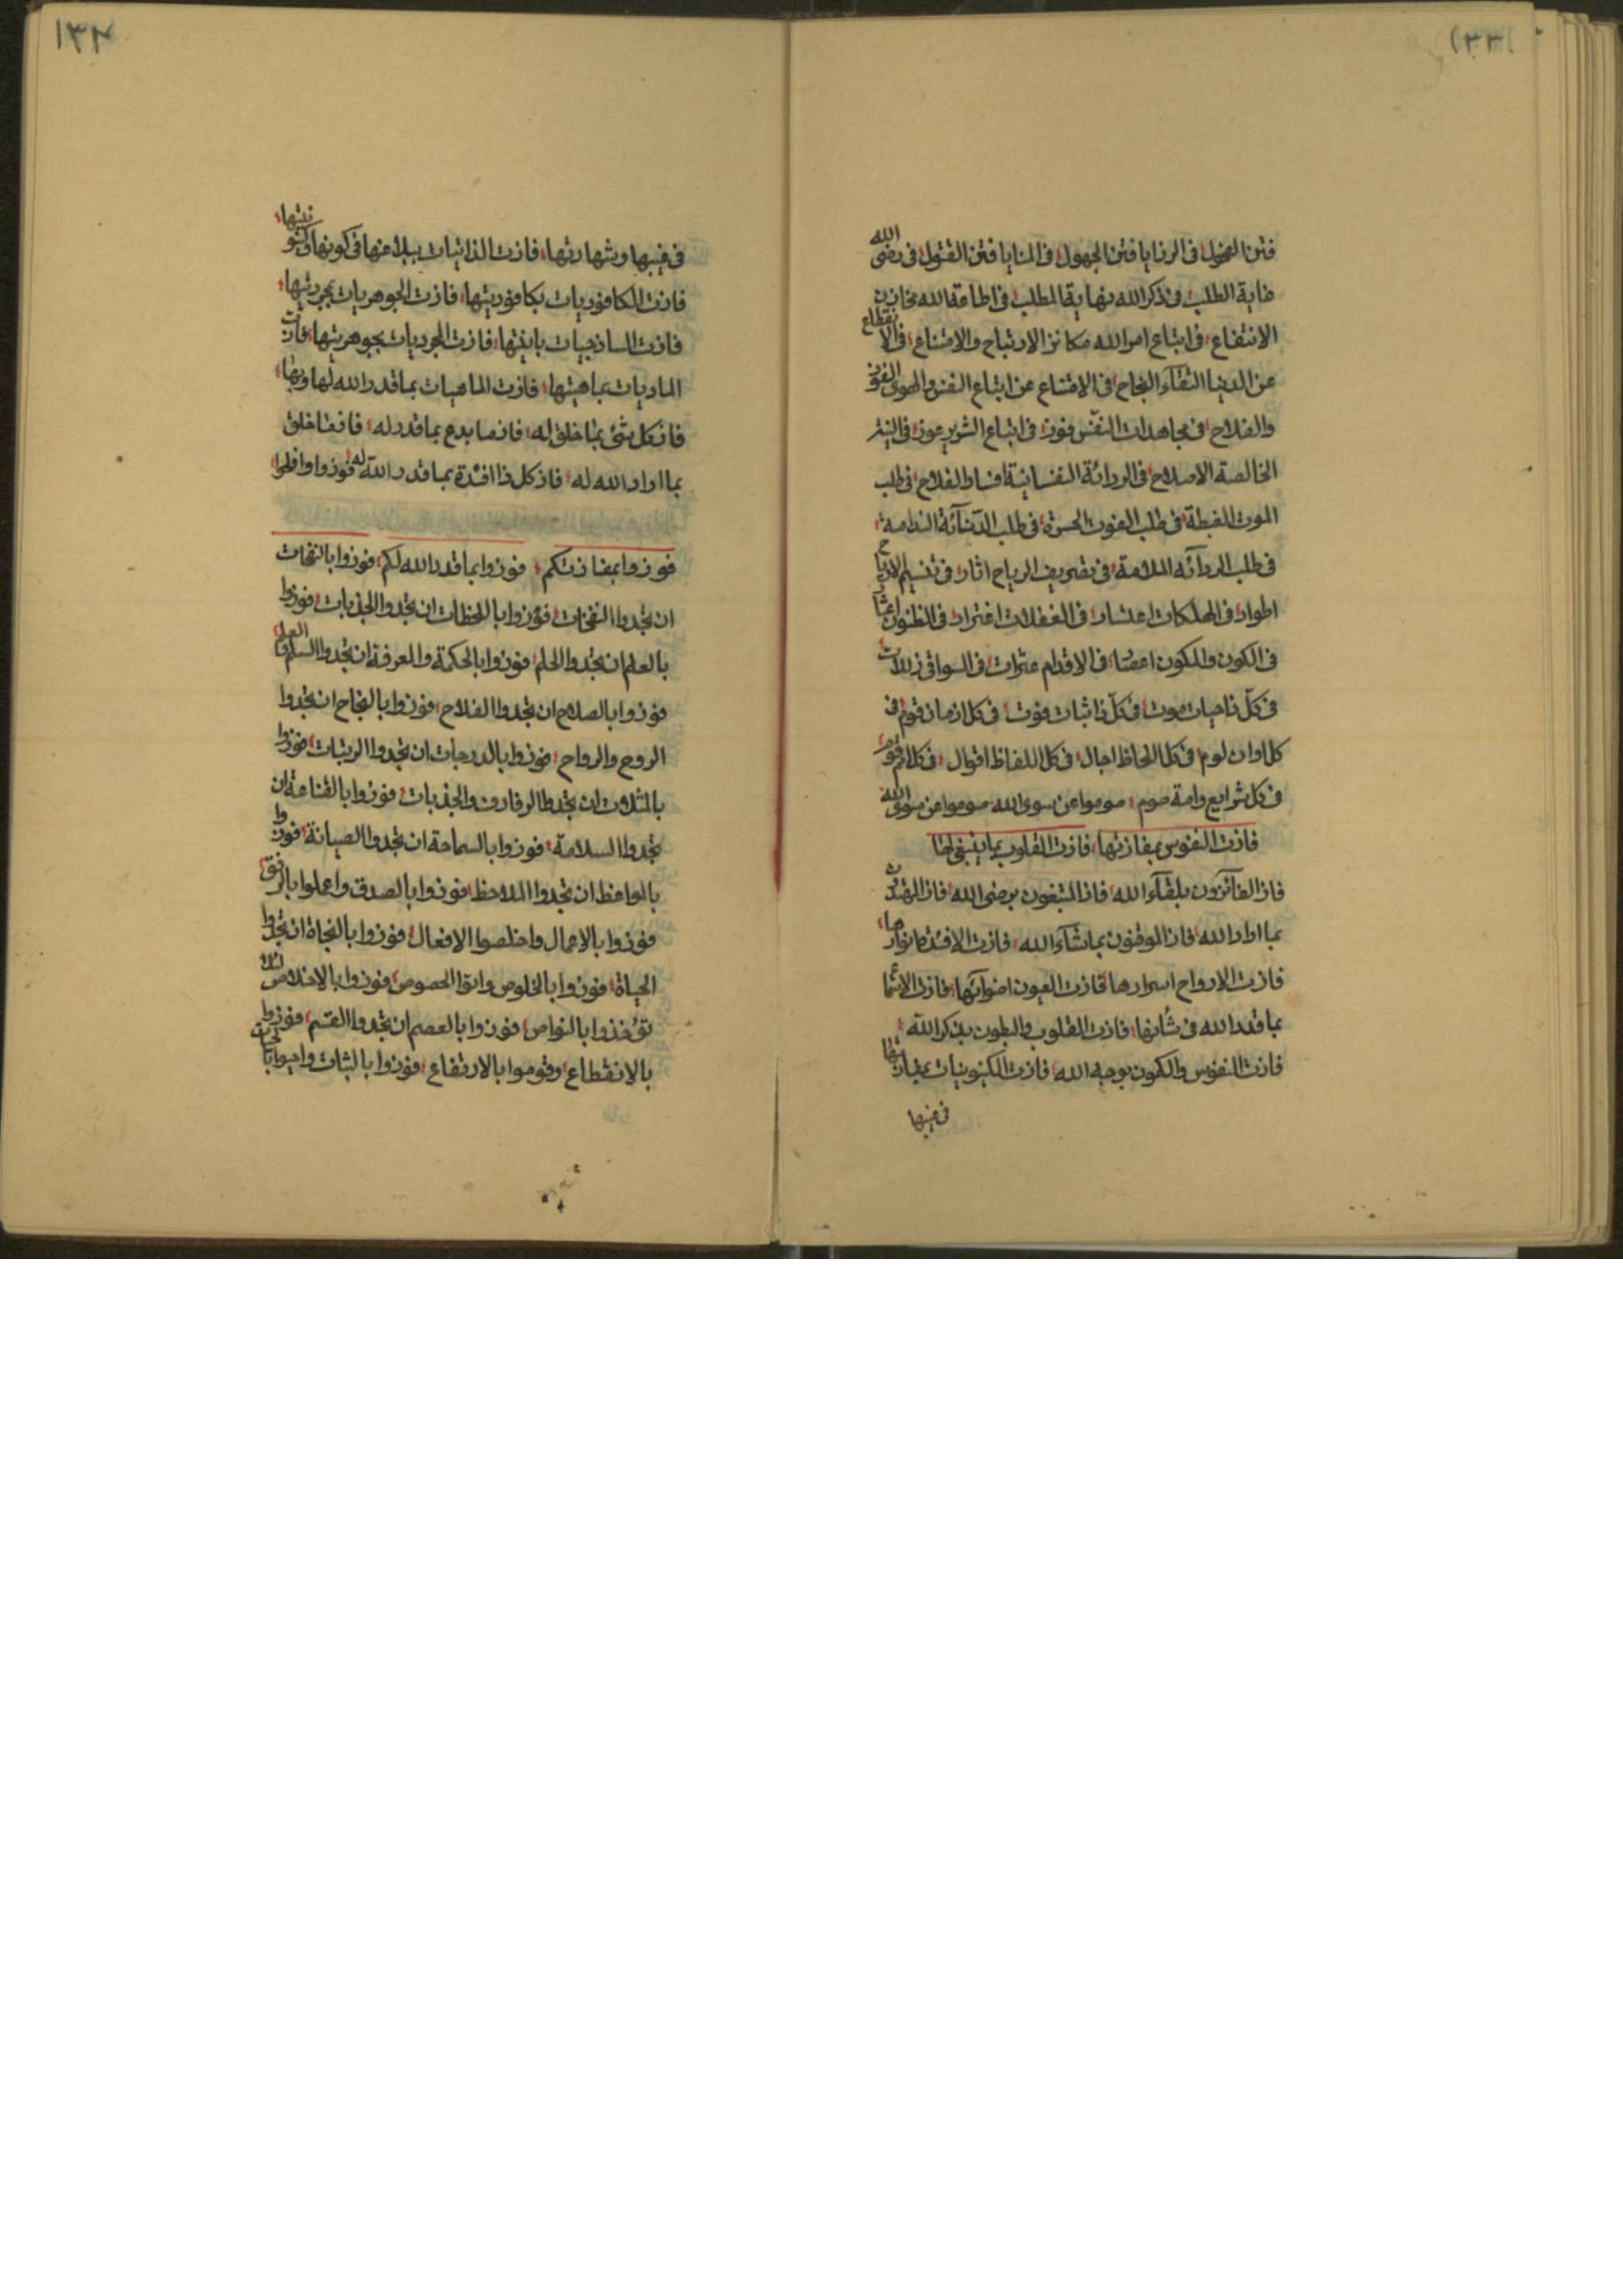 (١٣٣)
فتن الفحول في الرزايا فتن الجهول في المنايا فتن القتول في رضى الله
غاية الطلب في ذكر الله نهاية المطلب في اطاعة الله مخازن
الانتفاع في اتباع امر الله مكانز الارتياح والامتناع في الانقطاع
عن الدنيا التقاء النجاح في الامتناع عن اتباع النفس والهوى الفوز
والفلاح في مجاهدات النفس فوز في اتباع الشرير عوز في النية
الخالصة الاصلاح في الردائة النفسانية افساد الفلاح في طلب
الموت الغبطة في طلب الفوت الحسرة في طلب الدنآئة الندامة
في طلب الردآئه الملامة في تصريف الرياح اثار في تنسيم الارياح
اطوار في المهلكات اعتسار في الغفلات اغترار في الظنون اعثار
في الكون والمكون اعصار في الاقدام عثرات في السواقي زلات
في كلّ ذا حيات موت في كلّ ذا ثبات فوت في كل ازمان قوم في
كل اوان لوم في كل الحاظ اجال في كل الفاظ اقوال في كل امم قوم
في كل شرايع وامة صوم صوموا عن سوى الله صوموا عن سوى الله
فازت النفوس بمفازتها فازت القلوب بما ينبغي لها
فاز الفآئزون بلقآء الله فاز المتبعون برضى الله فاز المهتدون
بما اراد الله فاز الموقنون بما شآء الله فازت الافئدة بانوارها
فازت الارواح اسرارها فازت العيون اضوآئها فازت الاشياء
بما قدر الله في شأنها فازت القلوب والبطون بذكر الله
فازت النفوس والكون بوجه الله فازت الكينونيات
في غيبها
١٣٤
في غيبها وشهادتها فازت الذاتيات ببلاغها في كونها وكينونيتها
فازت الكافوريات بكافوريتها فازت الجوهريات بمجرديتها
فازت الساذجيات بانيتها فازت المجرديات بجوهريتها فازت
الماديات بماهيتها فازت الماهيات بما قدر الله لها وبها
فاز كل شئ بما خلق له فاز ما يدع بما قدر له فاز ما خلق
بما اراد الله له فاز كل ذا افئدة بما قدر الله له فوزوا وافلحوا
فوزوا بمفازتكم فوزوا بما قدر الله لكم فوزوا بالنفحات
ان تجدوا النفحات فوزوا باللحظات ان تجدوا الجذبات فوزوا
بالعلم ان تجدوا الحلم فوزوا بالحكمة والمعرفة ان تجدوا السلم والعلم
فوزوا بالصلاح ان تجدوا الفلاح فوزوا بالنجاح ان تجدوا
الروح والرواح فوزوا بالدرجات ان تجدوا الرتبات فوزوا
بالمثلات ان تجدوا الرفارف والجذبات فوزوا بالقناعة ان
تجدوا السلامة فوزوا بالسماحة ان تجدوا الصيانة فوزوا
بالمواعظ ان تجدوا الملاحظ فوزوا بالصدق واعملوا بالرفق
فوزوا بالاعمال واخلصوا الافعال فوزوا بالنجاة ان تجدوا
الحياة فوزوا بالخلوص واتوا الخصوص فوزوا بالاخلاص لئلا
تؤخذوا بالنواص فوزوا بالعصم ان تجدوا القسم فوزوا
بالانقطاع وقوموا بالارتفاع فوزوا بالثبات واحيوا